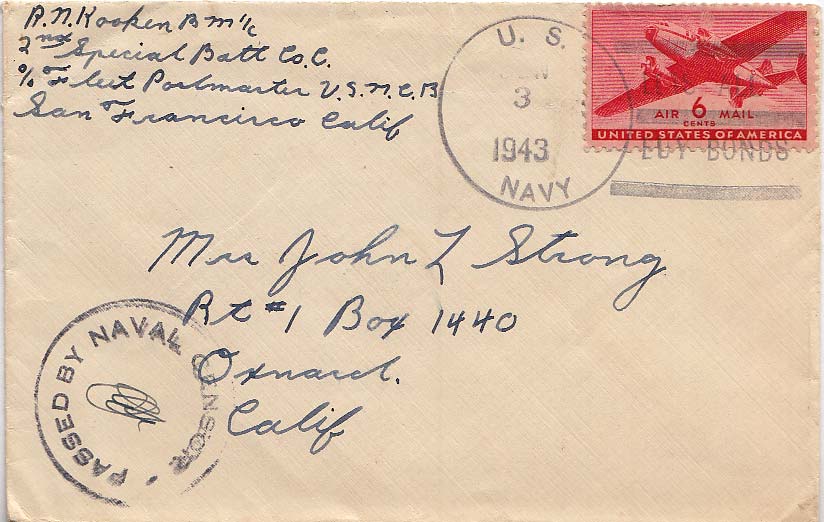 R. N. Kooken B M 1/c
2nd Special Batt Co. C.
c/o Fleet Postmaster U.S.N.C.B
San Francisco Calif
U. S.
3
1943
NAVY
AIR 6 MAIL
CENTS
UNITED STATES OF AMERICA
BUY BONDS
Mrs John L Strong
Rt #1 Box 1440
Oxnard.
Calif
PASSED BY NAVAL CENSOR